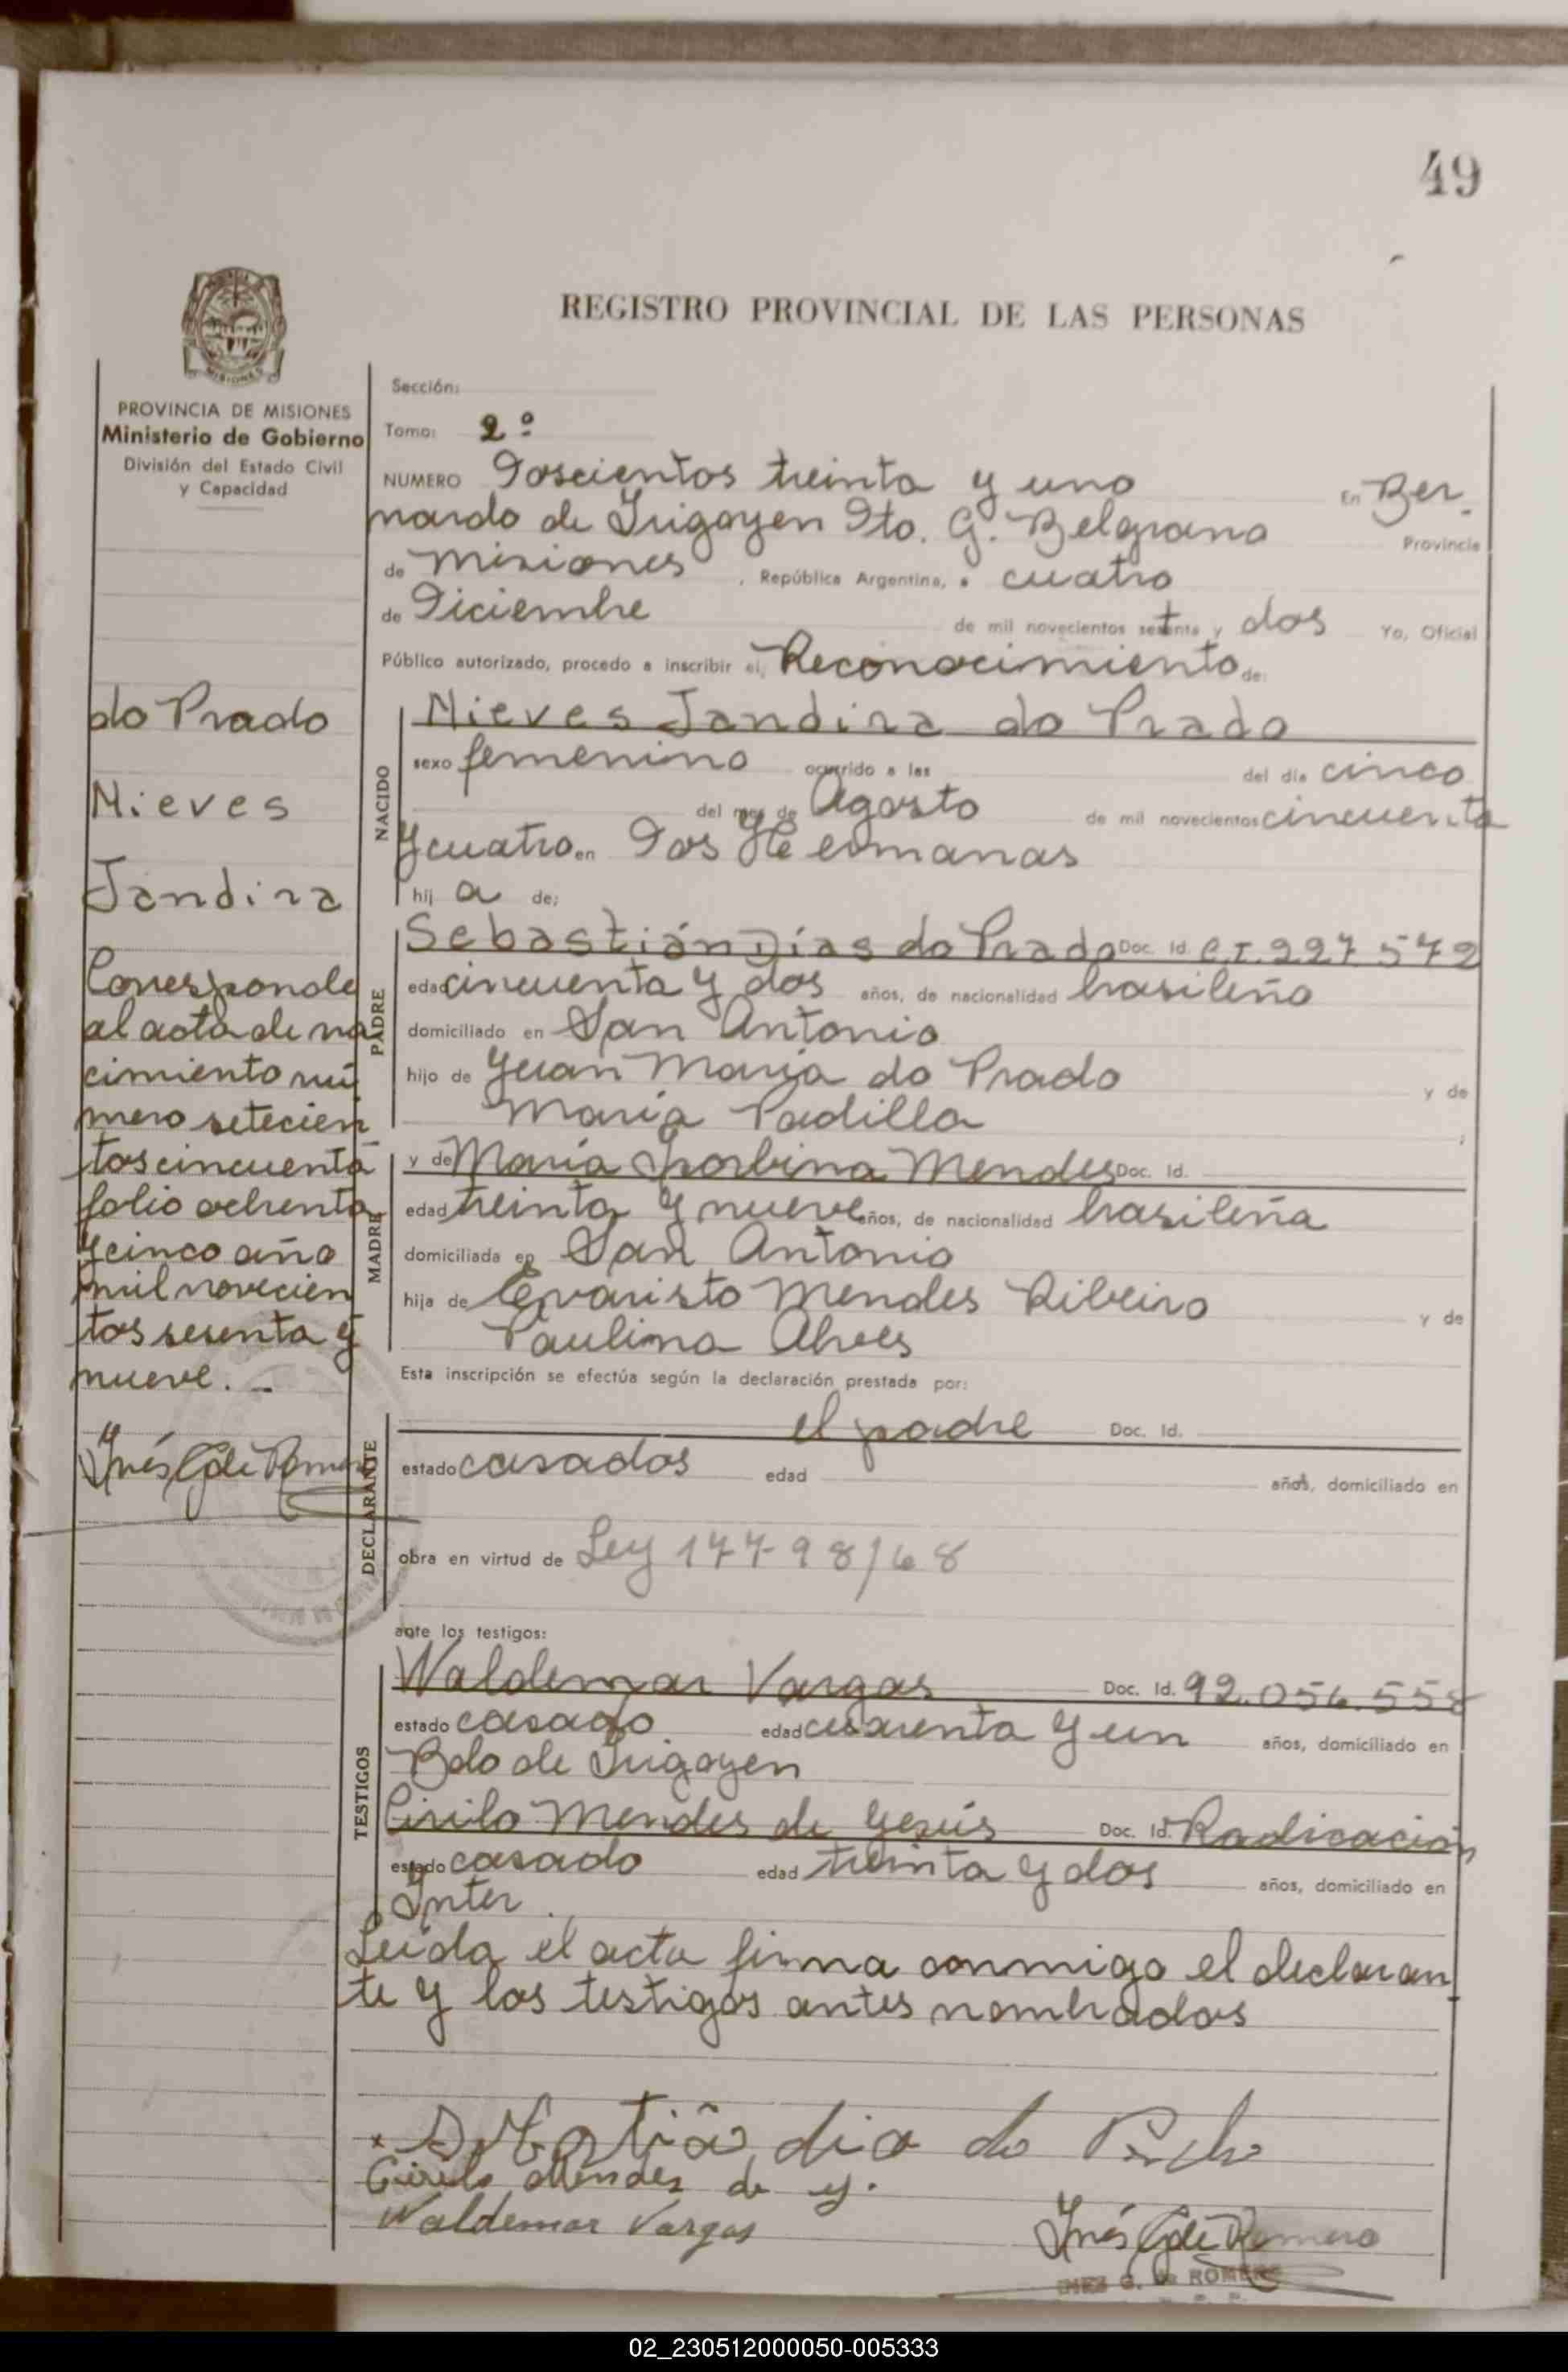 49
REGISTRO PROVINCIAL DE LAS PERSONAS
MISIONES
PROVINCIA DE MISIONES
Ministerio de Gobierno
División del Estado Civil
y Capacidad
do Prado
Nieves
Jandira
Corresponde
al acta de na
cimiento nú
mero setecien
tos cincuenta
folio ochenta
y cinco año
mil novecien
tos sesenta y
nueve. -
Inés G de Romero
Sección:
Tomo: 2º
NUMERO Doscientos treinta y uno En Ber-
nardo de Irigoyen Dto. G. Belgrano Provincia
de Misiones, República Argentina, a cuatro
de Diciembre de mil novecientos setenta y dos Yo, Oficial
Público autorizado, procedo a inscribir el, Reconocimiento de:
NACIDO
Nieves Jandira do Prado
sexo femenino ocurrido a las del día cinco
del mes de Agosto de mil novecientos cincuenta
y cuatro en Dos Hermanas
hij a de;
PADRE
Sebastián Días do Prado Doc. Id. C.I. 227 572
edad cincuenta y dos años, de nacionalidad brasileño
domiciliado en San Antonio
hijo de Juan María do Prado y de
María Padilla
MADRE
y de María Mendes Doc. Id.
edad treinta y nueve años, de nacionalidad brasileña
domiciliada en San Antonio
hija de Evaristo Mendes Ribeiro y de
Paulina Alves
Esta inscripción se efectúa según la declaración prestada por:
DECLARANTE
el padre Doc. Id.
estado casados edad años, domiciliado en
obra en virtud de Ley 17798/68
ante los testigos:
TESTIGOS
Waldemar Vargas Doc. Id. 92.056.558
estado casado edad cuarenta y un años, domiciliado en
Bdo de Irigoyen
Cirilo Mendes de Jesús Doc. Id. Radicación
estado casado edad treinta y dos años, domiciliado en
Inter.
Leída el acta firma conmigo el declaran-
te y los testigos antes nombrados
Cirilo Mendes de J.
Waldemar Vargas
Inés G de Romero
INES G. de ROMERO
02_230512000050-005333